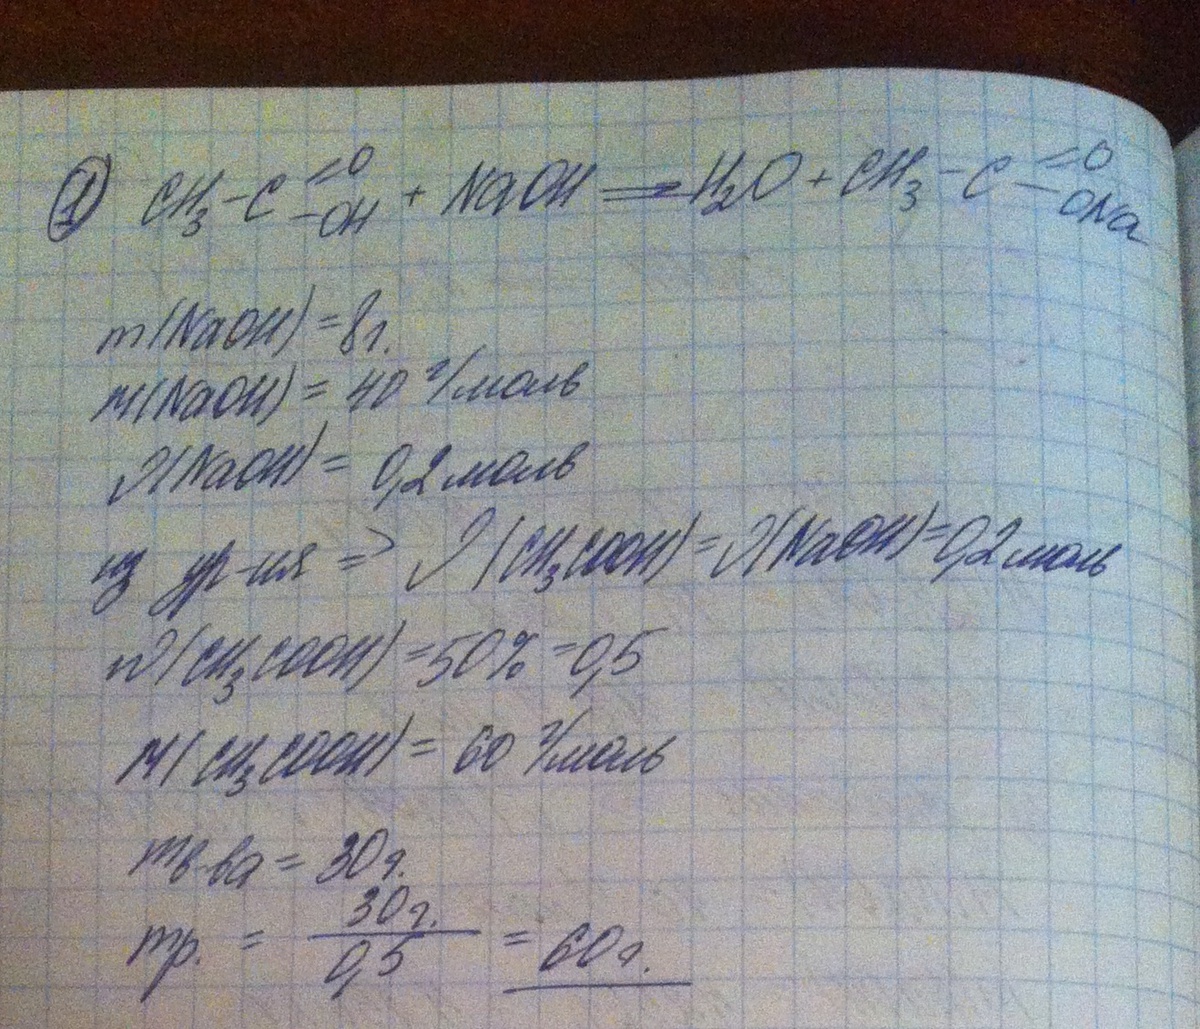 1) CH₃-C=O-OH + NaOH = H₂O + CH₃-C=O-ONa
m(NaOH) = 8г.
M(NaOH) = 40 г/моль
ν(NaOH) = 0,2 моль
из ур-ия => ν(CH₃COOH) = ν(NaOH) = 0,2 моль
w(CH₃COOH) = 50% = 0,5
M(CH₃COOH) = 60 г/моль
mв-ва = 30г.
mр. = 30г. / 0,5 = 60г.